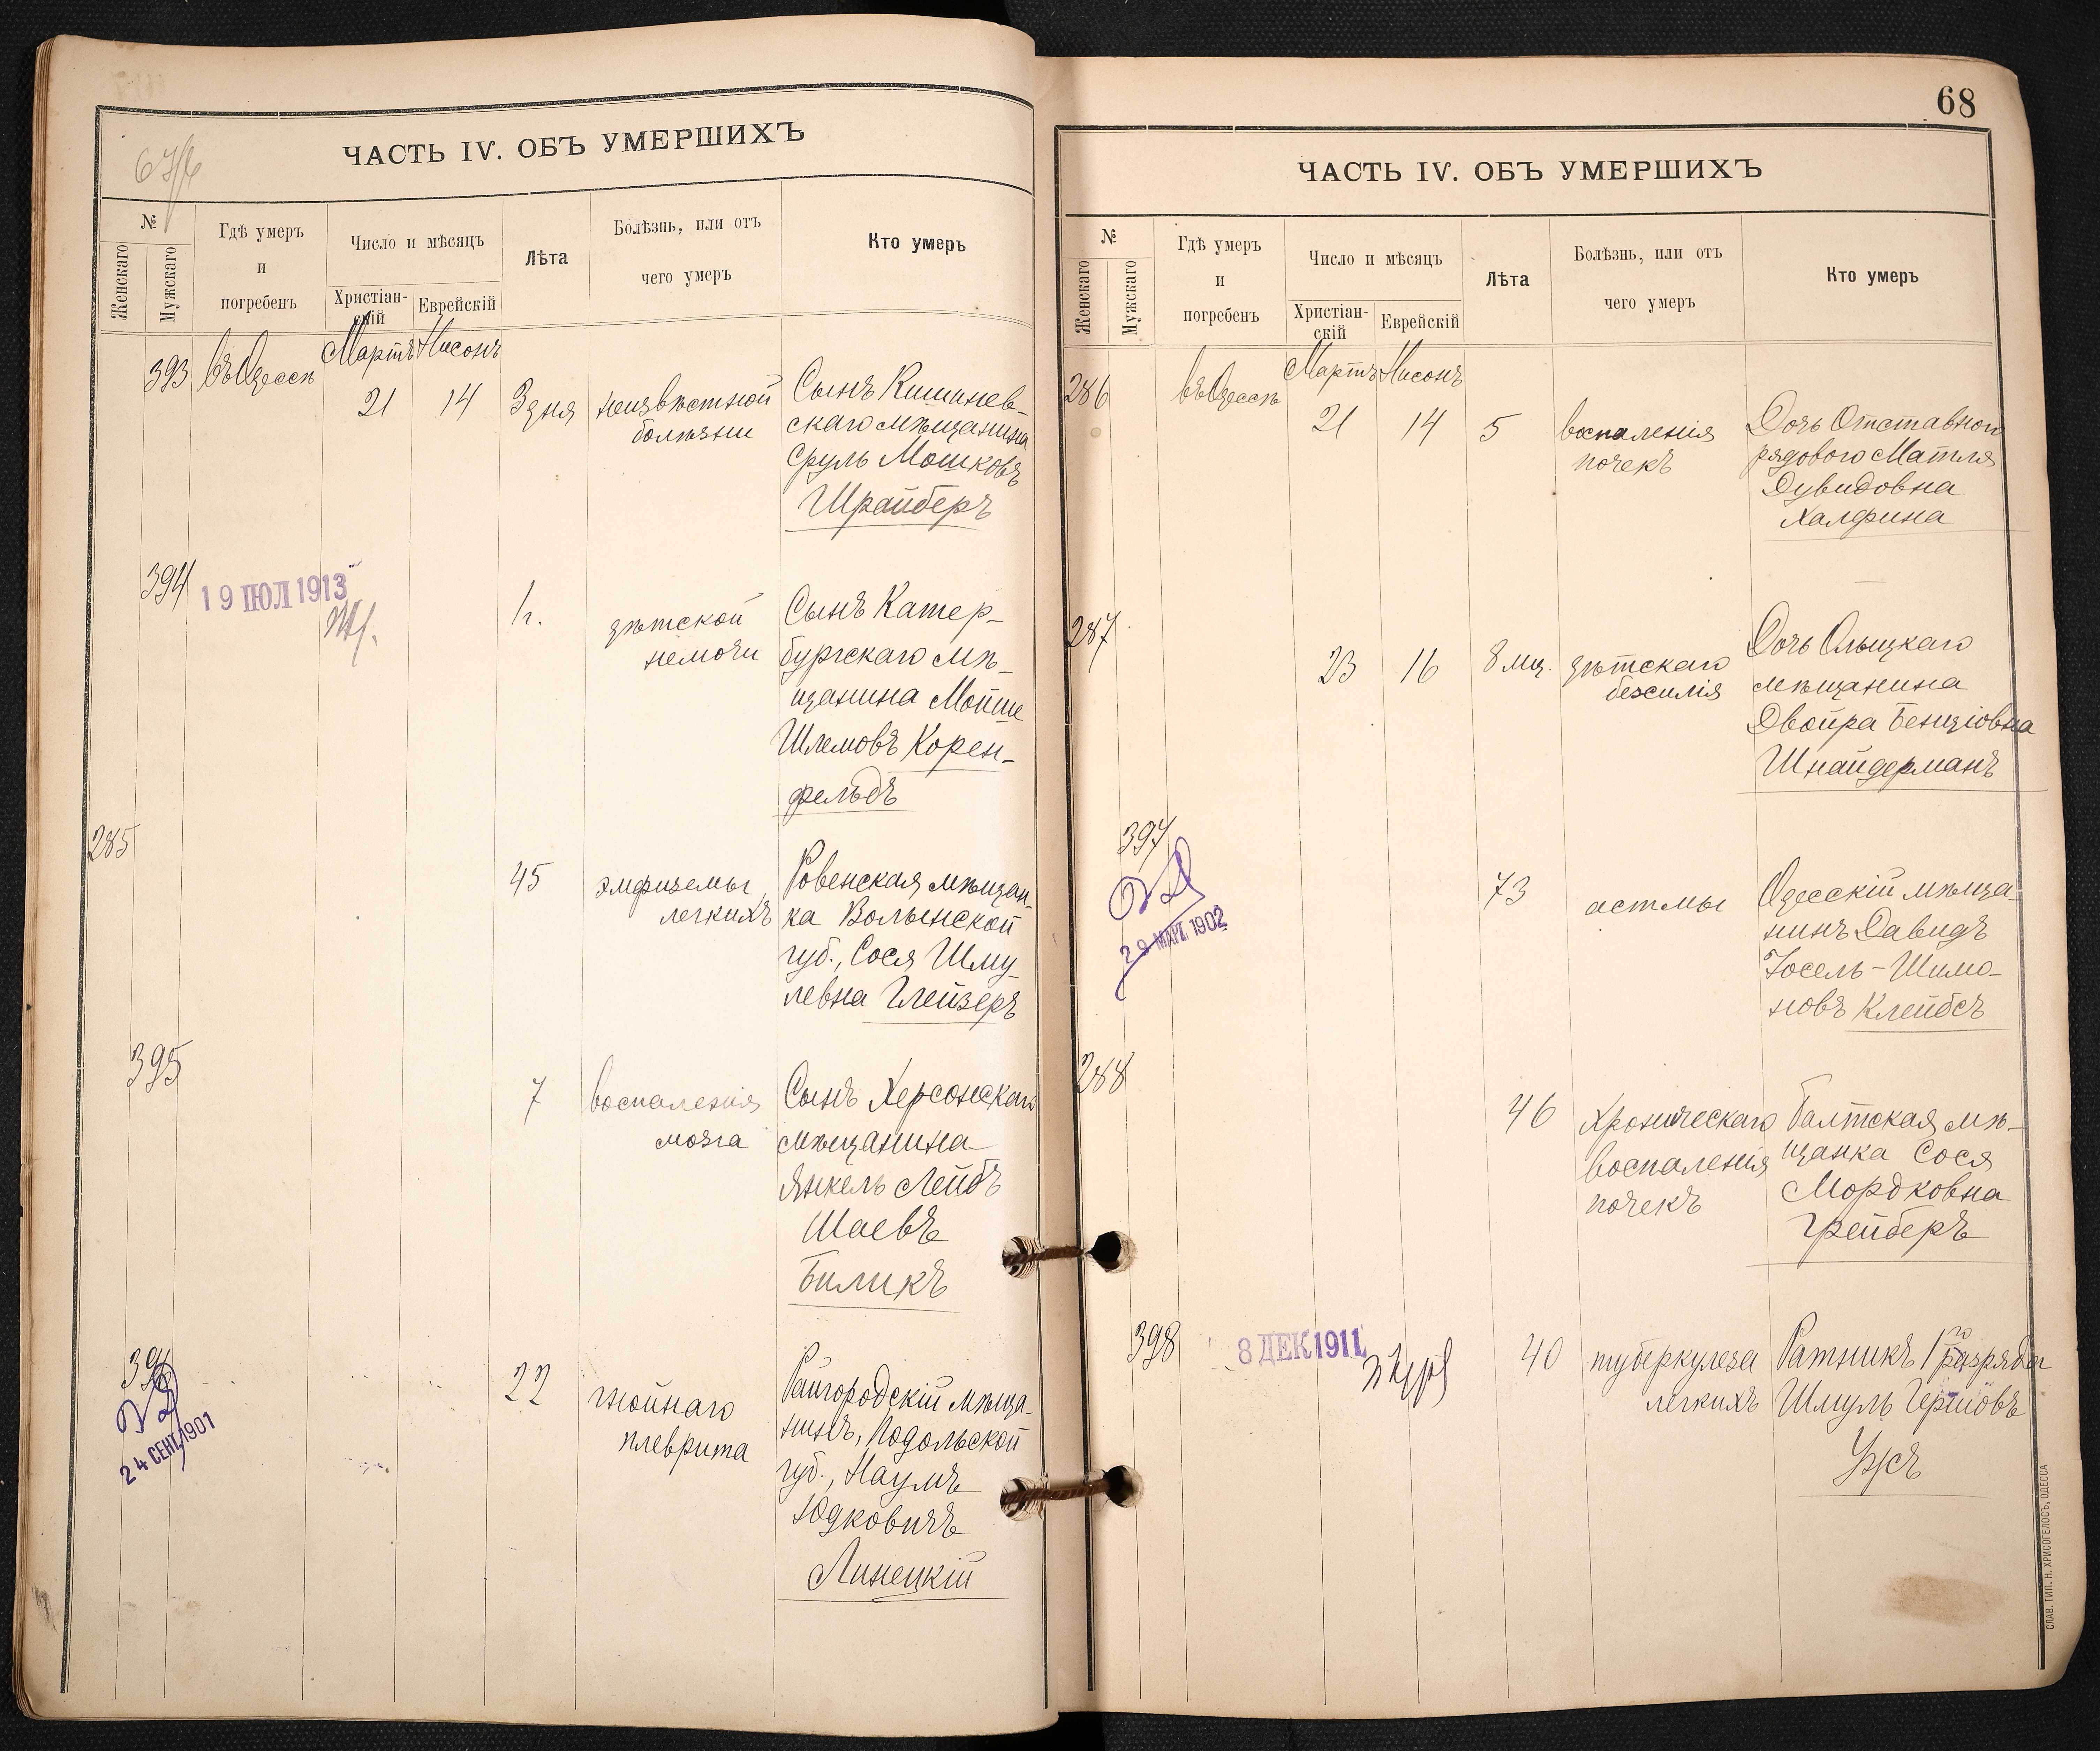 ЧАСТЬ IV. ОБЪ УМЕРШИХЪ
№
Женскаго
Мужскаго
Гдѣ умеръ
и
погребенъ
Число и мѣсяцъ
Христіан-
скій
Еврейскій
Лѣта
Болѣзнь, или отъ
чего умеръ
Кто умеръ
393
въ Одессѣ
Мартъ
21
Нисонъ
14
3 дня
неизвѣстной
болѣзни
Сынъ Кишинев-
скаго мѣщанина
Сруль Мошковъ
Шрайберъ
394
19 ІЮЛ 1913
1 г.
дѣтской
немочи
Сынъ Катер-
бургскаго мѣ-
щанина Мойше
Шлемовъ Корен-
фельдъ
285
45
эмфиземы
легкихъ
Ровенская мѣщан-
ка Волынской
губ., Сося Шму-
левна Глейзеръ
395
7
воспаленія
мозга
Сынъ Херсонскаго
мѣщанина
Янкель Лейбъ
Шаевъ
Биликъ
396
24 СЕНТ 1901
22
гнойнаго
плеврита
Райгородскій мѣща-
нинъ, Подольской
губ., Наумъ
Юдковичъ
Линецкій
68
ЧАСТЬ IV. ОБЪ УМЕРШИХЪ
№
Женскаго
Мужскаго
Гдѣ умеръ
и
погребенъ
Число и мѣсяцъ
Христіан-
скій
Еврейскій
Лѣта
Болѣзнь, или отъ
чего умеръ
Кто умеръ
286
въ Одессѣ
Мартъ
21
Нисонъ
14
5
воспаленія
почекъ
Дочь Отставного
рядового Матля
Дувидовна
Халфина
287
23
16
8 мц.
дѣтскаго
безсилія
Дочь Олыцкаго
мѣщанина
Двойра Бенціовна
Шнайдерманъ
397
29 МАР 1902
73
астмы
Одесскій мѣща-
нинъ Давидъ
Іосель-Шимо-
новъ Клейбсъ
288
46
Хроническаго
воспаленія
почекъ
Балтская мѣ-
щанка Сося
Мордковна
Грейберъ
398
8 ДЕК 1911
40
туберкулеза
легкихъ
Ратникъ 1го разряда
Шмуль Гершовъ
Ужъ
СЛАВ. ТИП. Н. ХРИСОГЕЛОСЪ, ОДЕССА